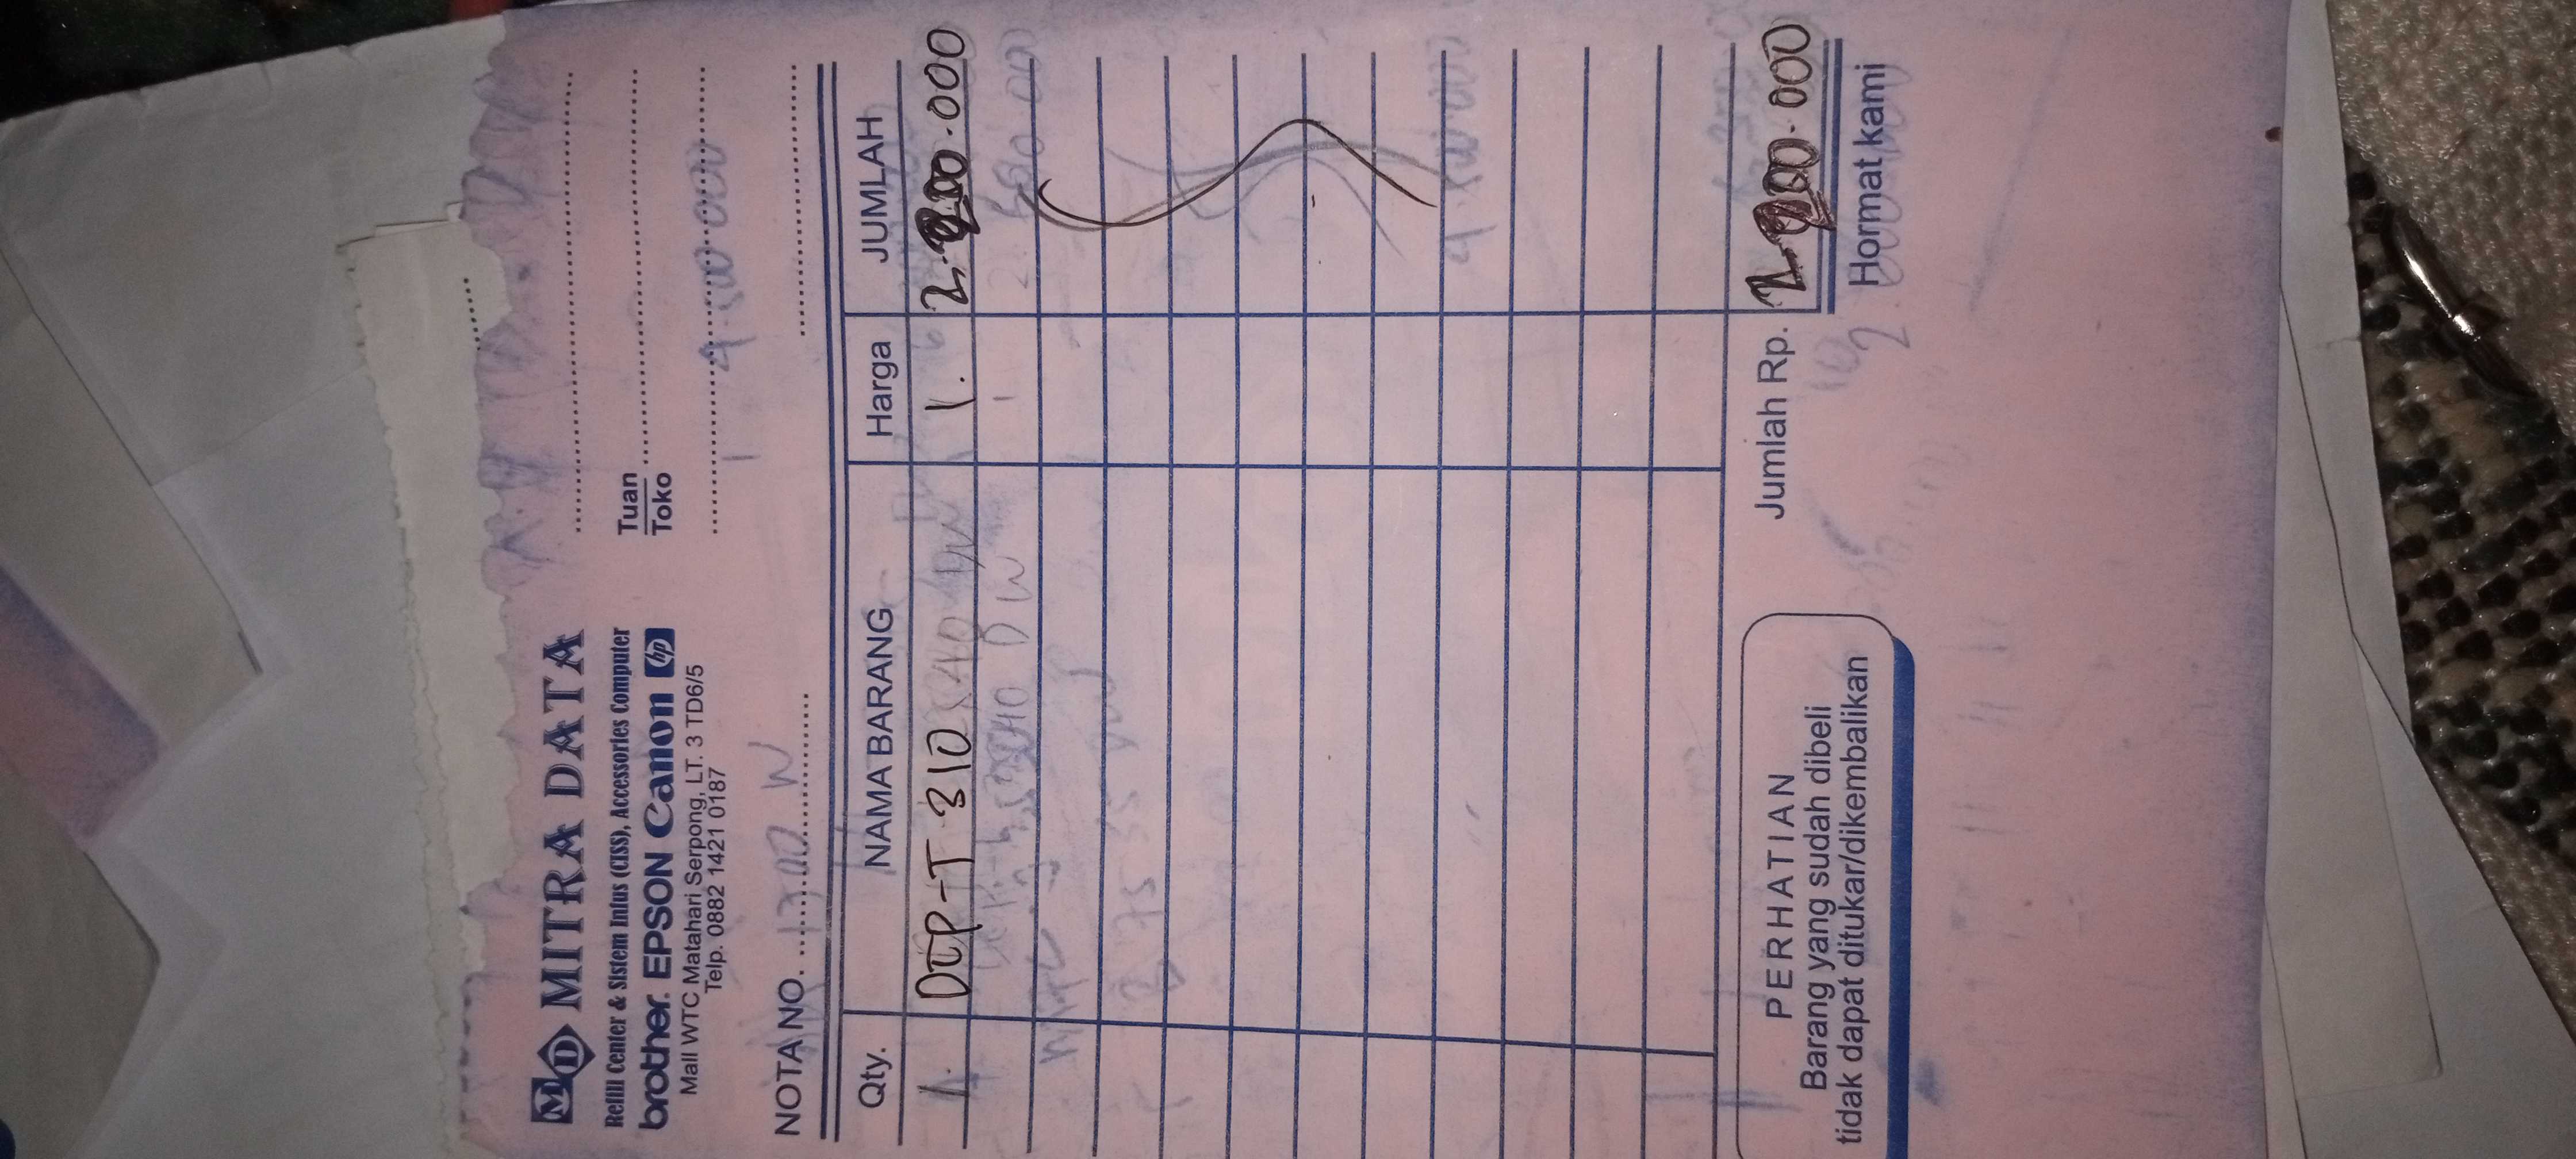 MD MITRA DATA
Refill Center & Sistem Infus (CISS), Accessories Computer
brother. EPSON Canon hp
Mall WTC Matahari Serpong, LT. 3 TD6/5
Telp. 0882 1421 0187
Tuan
Toko
NOTA NO.
Qty. NAMA BARANG Harga JUMLAH
1. DCP-T 310 1. 2.200.000
Jumlah Rp. 2.200.000
PERHATIAN
Barang yang sudah dibeli
tidak dapat ditukar/dikembalikan
Hormat kami